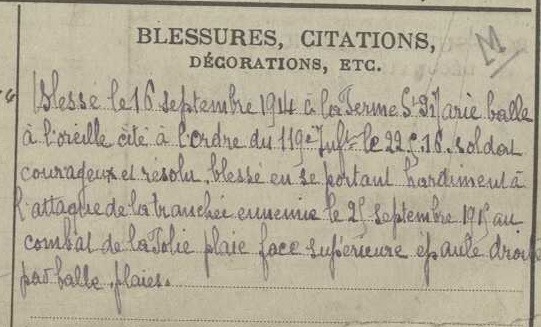 BLESSURES, CITATIONS,
DÉCORATIONS, ETC.
M
Blessé le 16 septembre 1914 à la ferme Ste Marie balle
à l'oreille cité à l'ordre du 119e Inft le 22. .16. soldat
courageux et résolu, blessé en se portant hardiment à
l'attaque de la tranchée ennemie le 25 septembre 1915 au
combat de la Folie plaie face supérieure épaule droite
par balle, plaies.